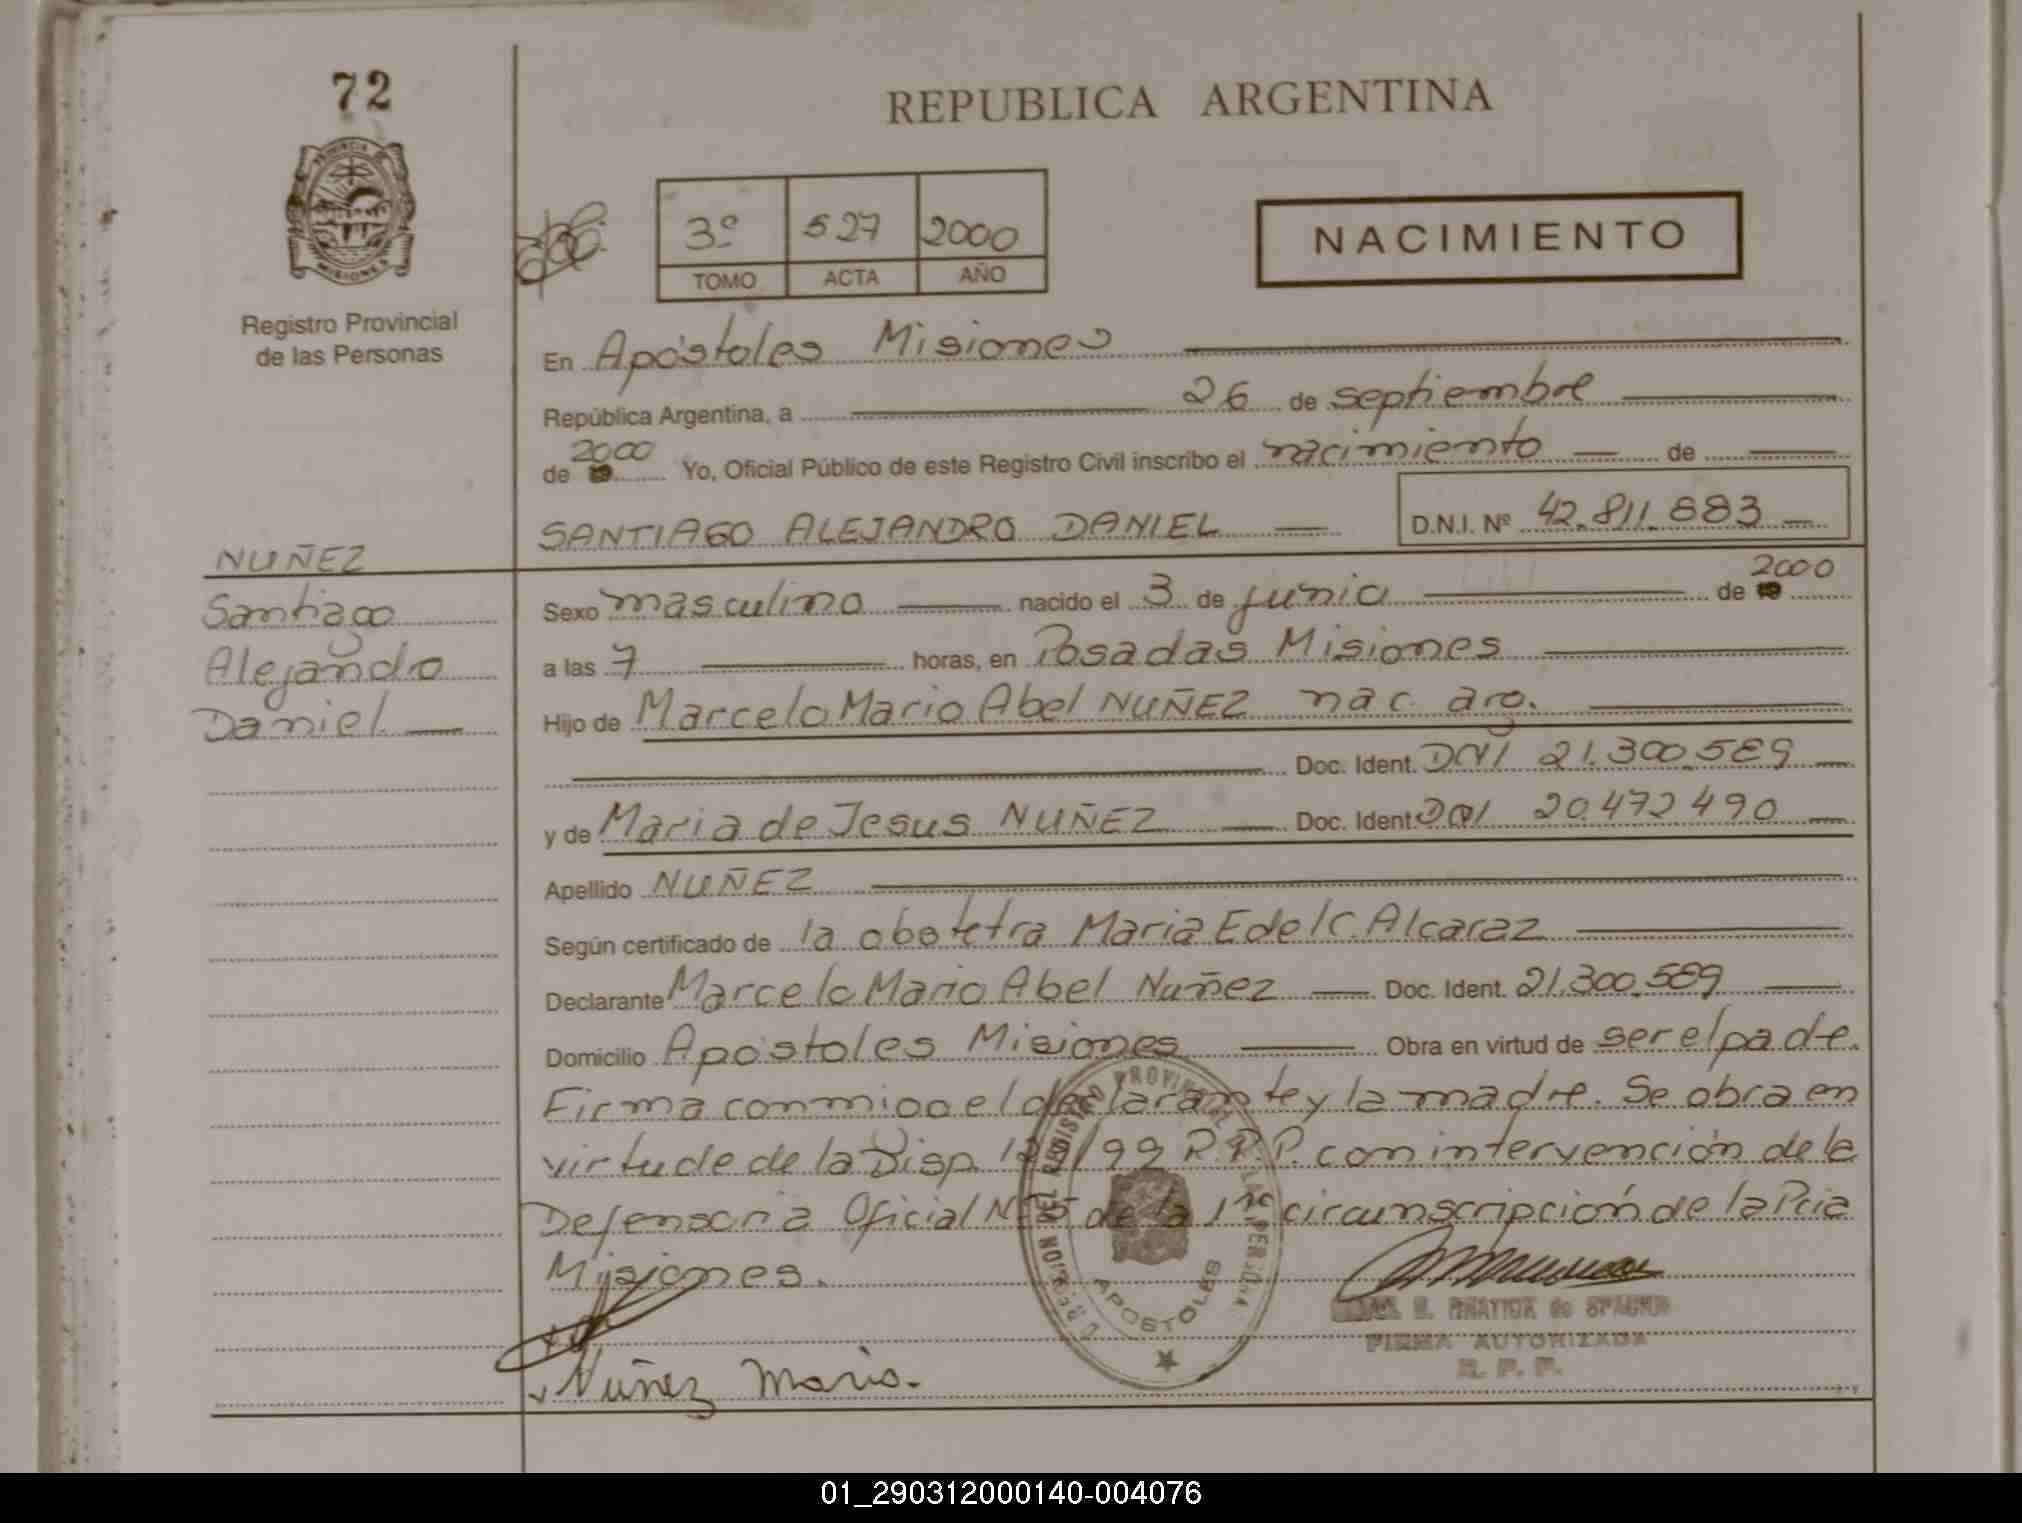 72
REPUBLICA ARGENTINA
PROVINCIA DE
MISIONES
3º 527 2000
TOMO ACTA AÑO
NACIMIENTO
Registro Provincial
de las Personas
En Apóstoles Misiones
República Argentina, a 26 de septiembre
de 2000 Yo, Oficial Público de este Registro Civil inscribo el nacimiento de
SANTIAGO ALEJANDRO DANIEL D.N.I. Nº 42.811.883
NUÑEZ
Santiago
Alejandro
Daniel
Sexo masculino nacido el 3 de junio de 2000
a las 7 horas, en Posadas Misiones
Hijo de Marcelo Mario Abel NUÑEZ nac. arg.
Doc. Ident. DNI 21.300.589
y de Maria de Jesus NUÑEZ Doc. Ident. DNI 20.472.490
Apellido NUÑEZ
Según certificado de la obotetra Maria Edel C. Alcaraz
Declarante Marcelo Mario Abel Nuñez Doc. Ident. 21.300.589
Domicilio Apóstoles Misiones Obra en virtud de ser el padre.
Firma conmigo el declarante y la madre. Se obra en
virtude de la Disp. /99 R.P.P. con intervención de la
Defensoria Oficial Nº 5 de la 1ra circunscripción de la Pcia
Misiones.
DEL REGISTRO PROVINCIAL DE LAS PERSONAS
APOSTOLES
FIRMA AUTORIZADA
R. P. P.
Nuñez Maria.
01_290312000140-004076